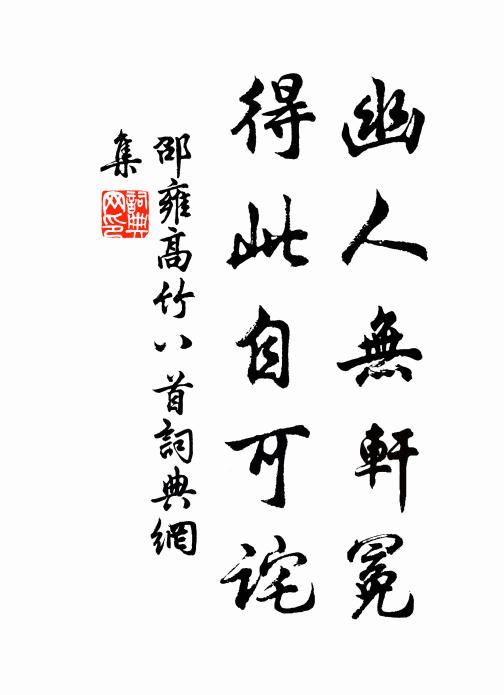 幽人無軒冕
得此自可詫
邵雍高竹八首詞典網
集
詞典
网印